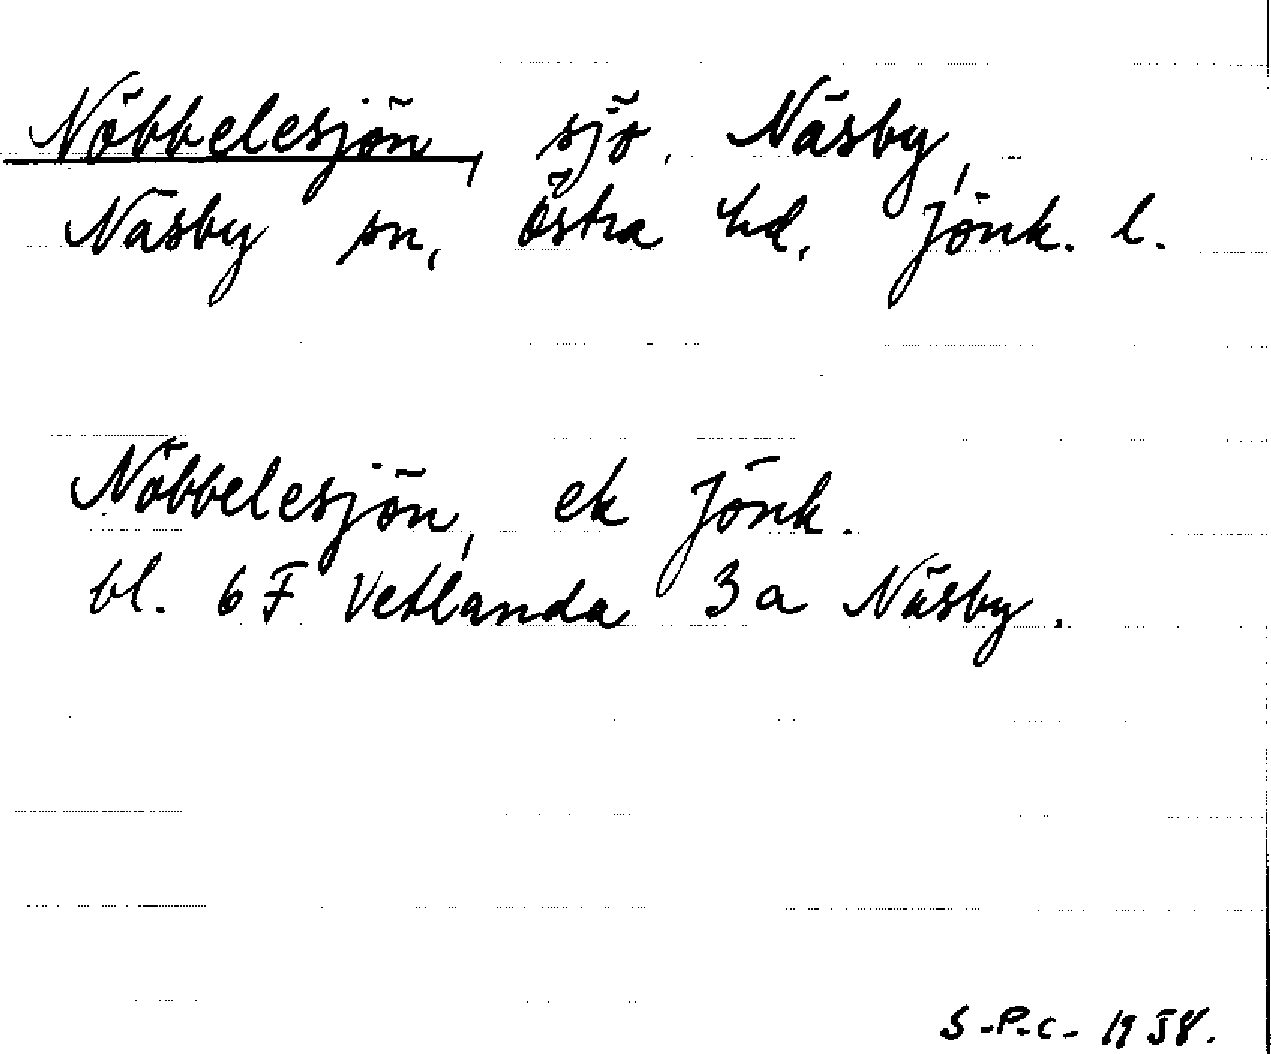 Nöbbelesjön, sjö, Näsby,
Näsby sn, Östra hd, Jönk. l.
Nöbbelesjön, ek Jönk.
bl. 6 F Vetlanda 3 a Näsby.
S-P-C- 1958.